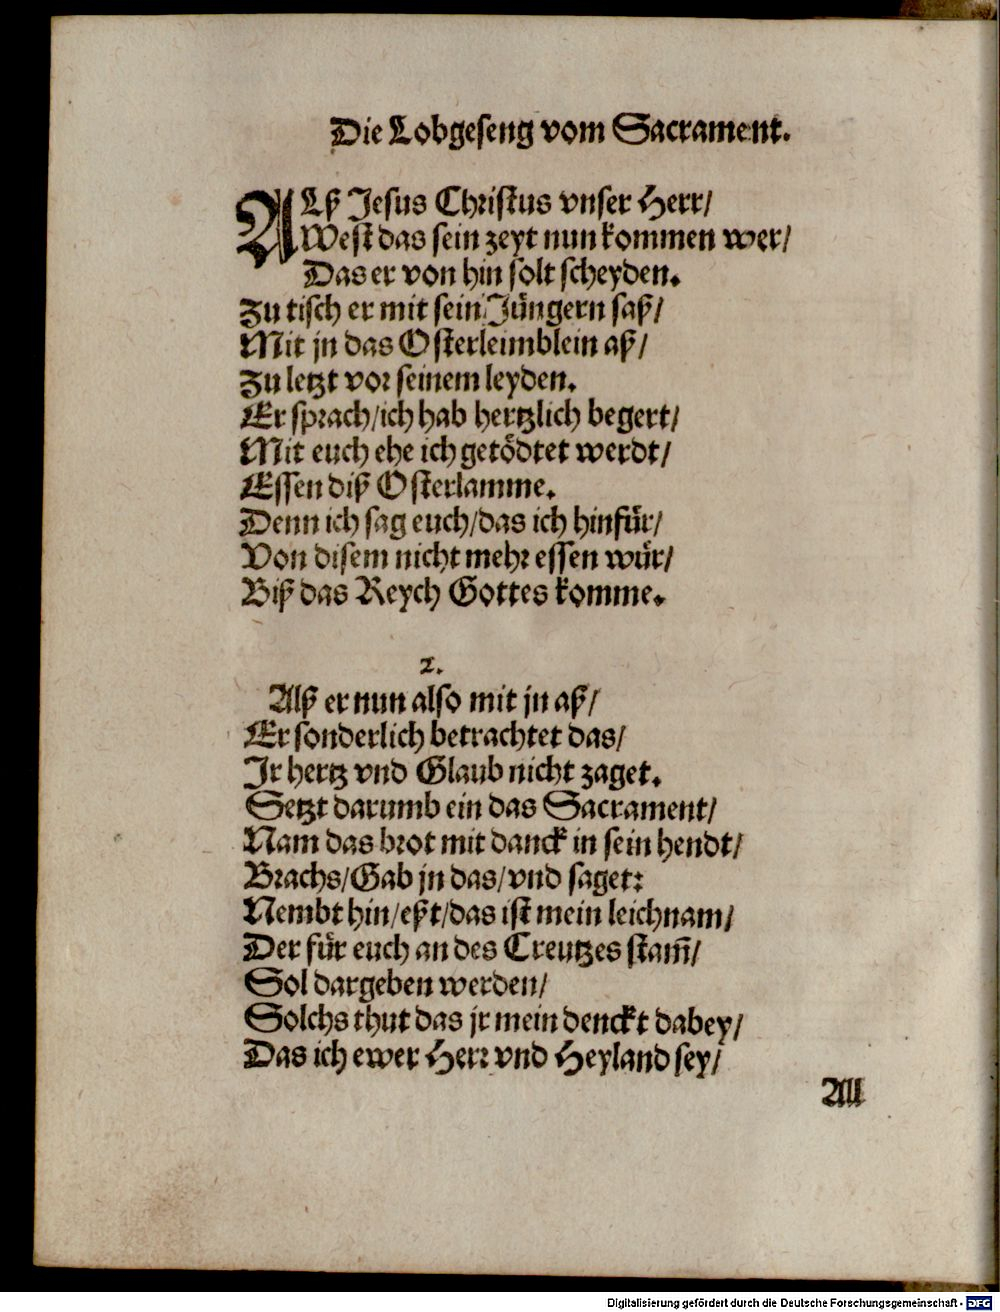 Die Lobgeseng vom Sacrament.
ALß Jesus Christus vnser Herr/
West das sein zeyt nun kommen wer/
Das er von hin solt scheyden.
Zu tisch er mit sein Jüngern saß/
Mit jn das Osterleimblein aß/
Zu letzt vor seinem leyden.
Er sprach/ich hab hertzlich begert/
Mit euch ehe ich getödtet werdt/
Essen diß Osterlamme.
Denn ich sag euch/das ich hinfür/
Von disem nicht mehr essen wür/
Biß das Reych Gottes komme.
2.
Alß er nun also mit jn aß/
Er sonderlich betrachtet das/
Ir hertz vnd Glaub nicht zaget.
Setzt darumb ein das Sacrament/
Nam das brot mit danck in sein hendt/
Brachs/Gab jn das/vnd saget:
Nembt hin/eßt/das ist mein leichnam/
Der für euch an des Creutzes stam̃/
Sol dargeben werden/
Solchs thut das jr mein denckt dabey/
Das ich ewer Herr vnd Heyland sey/
All
Digitalisierung gefördert durch die Deutsche Forschungsgemeinschaft - DFG